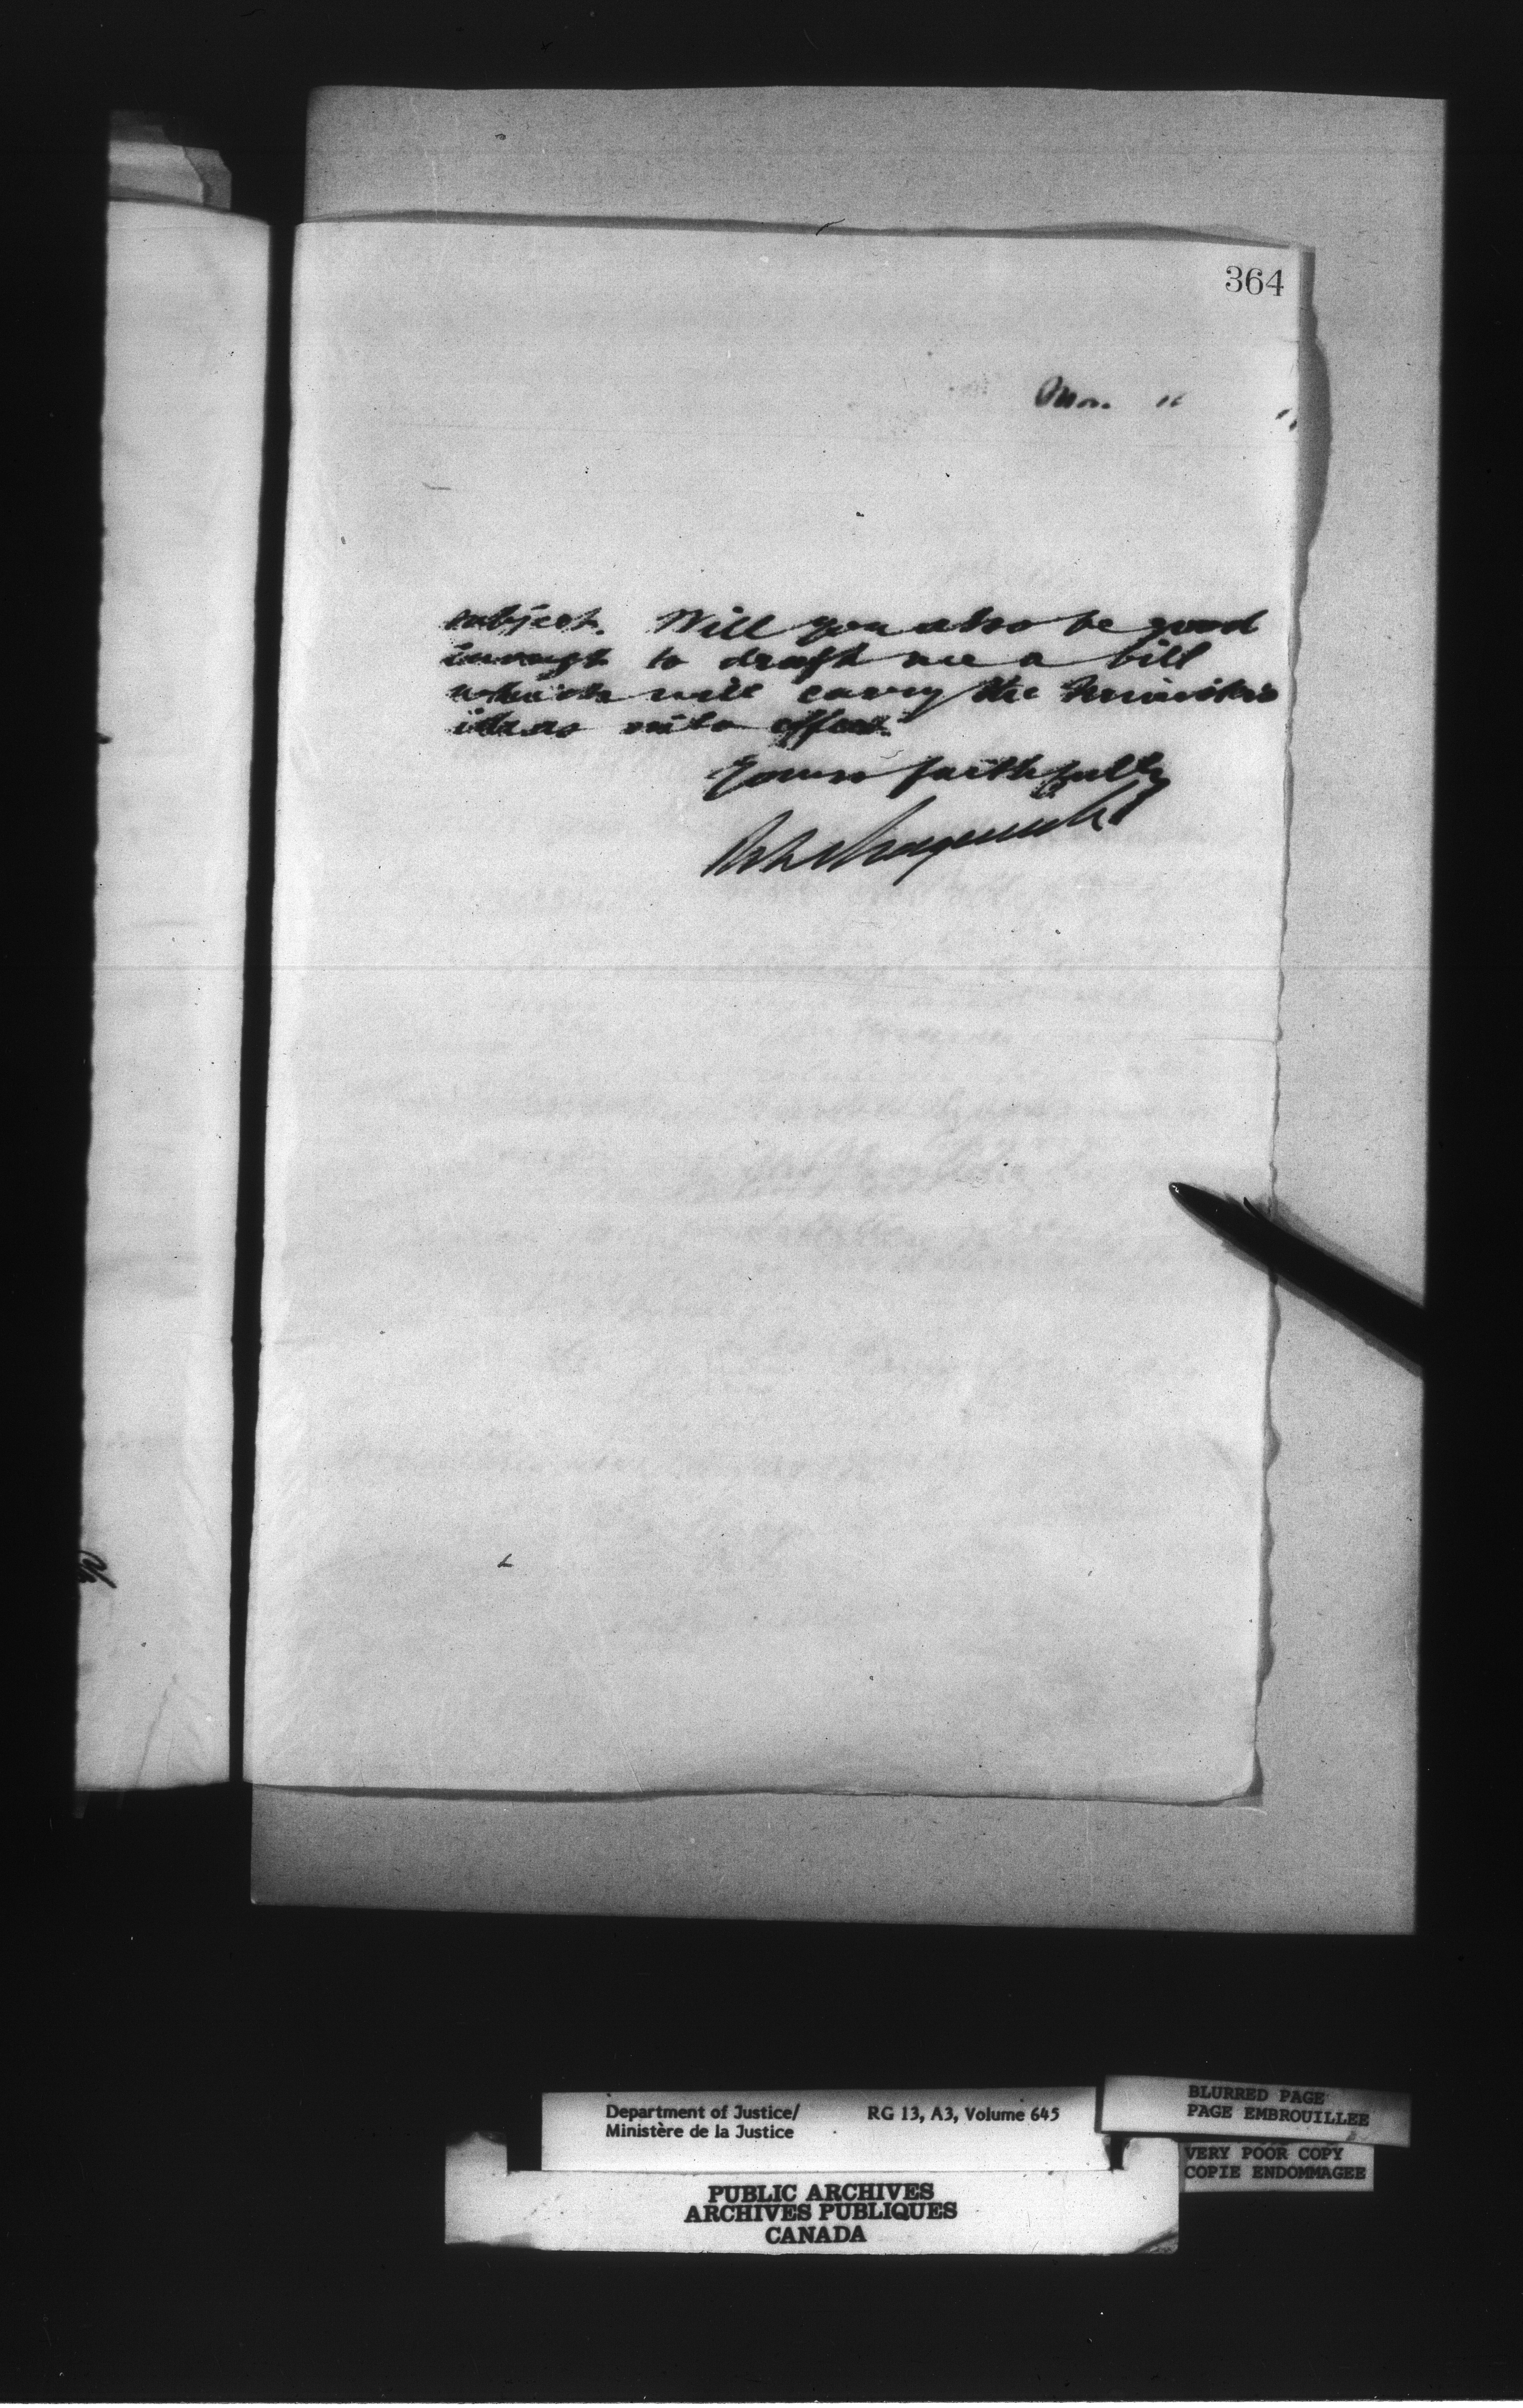 364
subject. Will you also be good
enough to draft me a bill
which will carry the Minister's
ideas into effect.
Yours faithfully
Department of Justice/
Ministère de la Justice
RG 13, A3, Volume 645
BLURRED PAGE
PAGE EMBROUILLEE
VERY POOR COPY
COPIE ENDOMMAGEE
PUBLIC ARCHIVES
ARCHIVES PUBLIQUES
CANADA